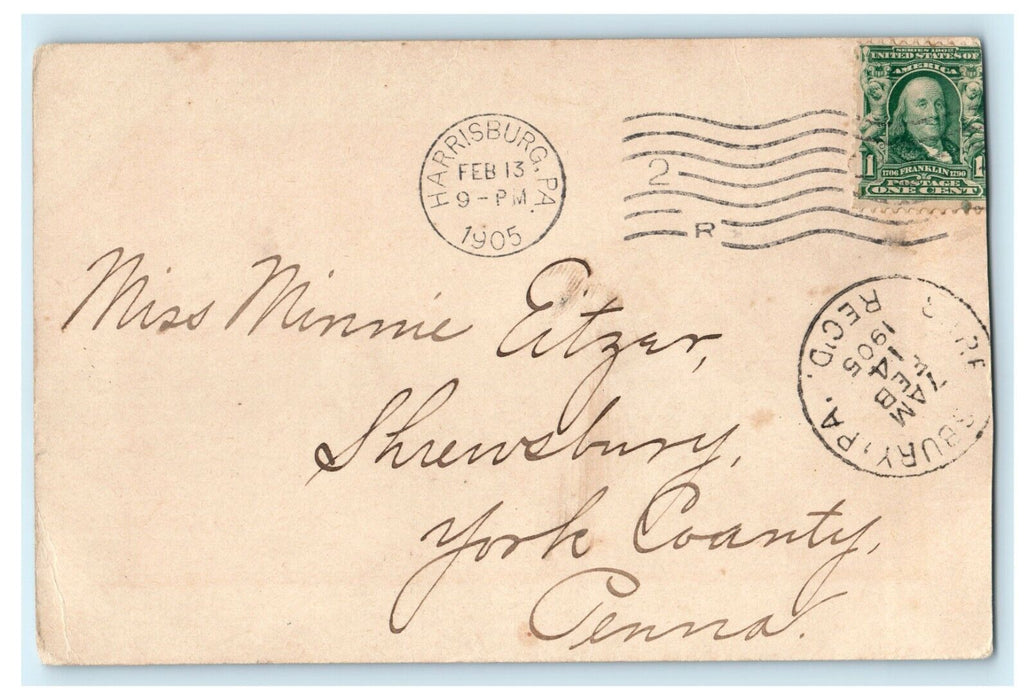 SERIES 1902
UNITED STATES OF
AMERICA
1 1
1706 FRANKLIN 1790
POSTAGE
ONE CENT
HARRISBURG, PA.
FEB 13
9-PM
1905
2
R
Miss Minnie Eitzer,
Shrewsbury,
York County,
Penna.
SBURY, PA.
REC'D.
7 AM
FEB
14
1905